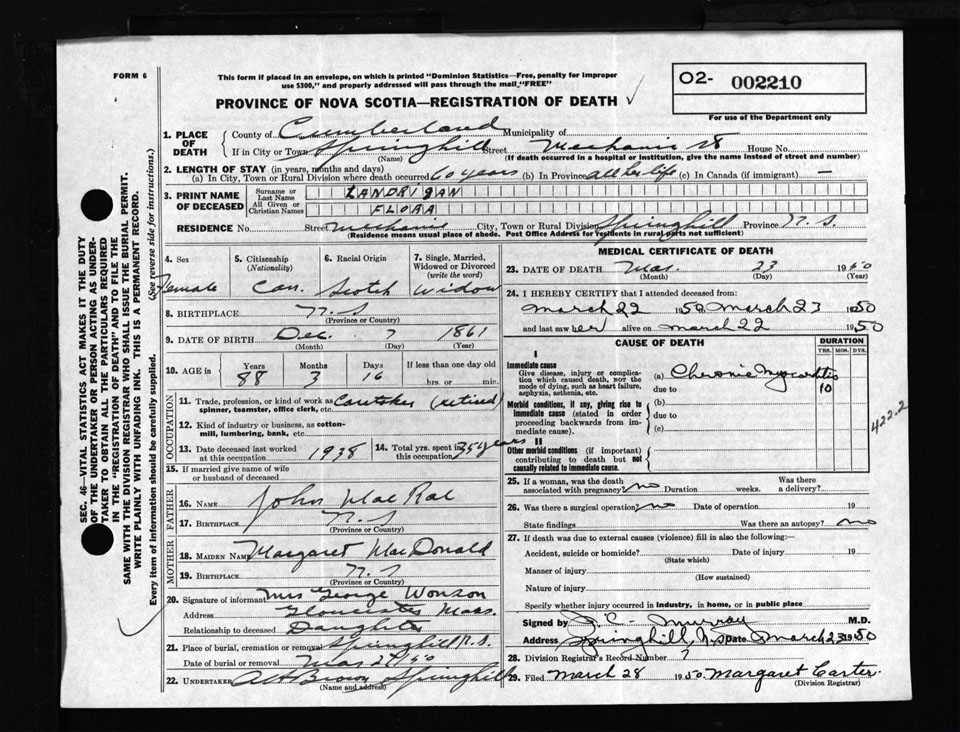 FORM 6
This form if placed in an envelope, on which is printed "Dominion Statistics—Free, penalty for improper
use $300," and properly addressed will pass through the mail, "FREE"
O2- 002210
For use of the Department only
PROVINCE OF NOVA SCOTIA—REGISTRATION OF DEATH ✓
1. PLACE OF DEATH
County of Cumberland Municipality of
If in City or Town Springhill Street Mechanic St House No.
(Name) (If death occurred in a hospital or institution, give the name instead of street and number)
2. LENGTH OF STAY (in years, months and days)
(a) In City, Town or Rural Division where death occurred 60 years (b) In Province all her life (c) In Canada (if immigrant) —
3. PRINT NAME OF DECEASED
Surname or Last Name LANDRIGAN
All Given or Christian Names FLORA
RESIDENCE No. Street Mechanic City, Town or Rural Division Springhill Province N.S.
(Residence means usual place of abode. Post Office Address for residents in rural parts not sufficient)
4. Sex Female
5. Citizenship (Nationality) Can.
6. Racial Origin Scotch
7. Single, Married, Widowed or Divorced (write the word) Widow
8. BIRTHPLACE N.S
(Province or Country)
9. DATE OF BIRTH Dec. 7 1861
(Month) (Day) (Year)
10. AGE in Years 88 Months 3 Days 16 If less than one day old hrs. or min.
OCCUPATION
11. Trade, profession, or kind of work as spinner, teamster, office clerk, etc. Caretaker (retired)
12. Kind of industry or business, as cotton-mill, lumbering, bank, etc.
13. Date deceased last worked at this occupation 1938
14. Total yrs. spent in this occupation 35 years
15. If married give name of wife or husband of deceased
FATHER
16. NAME John MacRae
17. BIRTHPLACE N.S
(Province or Country)
MOTHER
18. MAIDEN NAME Margaret MacDonald
19. BIRTHPLACE N.S
(Province or Country)
20. Signature of informant Mrs George Wonson
Address Gloucester Mass.
Relationship to deceased Daughter
21. Place of burial, cremation or removal Springhill N.S.
Date of burial or removal Mar 27/50
22. UNDERTAKER Brown Springhill
(Name and address)
MEDICAL CERTIFICATE OF DEATH
23. DATE OF DEATH Mar. 23 1950
(Month) (Day) (Year)
24. I HEREBY CERTIFY that I attended deceased from:
March 22 1950 March 23 1950
and last saw her alive on March 22 1950
CAUSE OF DEATH
DURATION
YRS. MOS. DYS.
I
Immediate cause
Give disease, injury or complication which caused death, not the mode of dying, such as heart failure, asphyxia, asthenia, etc.
(a) Chronic Myocarditis
due to 10
Morbid conditions, if any, giving rise to immediate cause (stated in order proceeding backwards from immediate cause).
(b)
due to
(c)
422.2
II
Other morbid conditions (if important) contributing to death but not causally related to immediate cause.
25. If a woman, was the death associated with pregnancy? no Duration weeks. Was there a delivery?
26. Was there a surgical operation? no Date of operation 19
State findings Was there an autopsy? no
27. If death was due to external causes (violence) fill in also the following:—
Accident, suicide or homicide? Date of injury 19
(State which)
Manner of injury
(How sustained)
Nature of injury
Specify whether injury occurred in industry, in home, or in public place
Signed by J.C. Murray M.D.
Address Springhill, N.S Date March 23 1950
28. Division Registrar's Record Number 7
29. Filed March 28 1950. Margaret Carter
(Division Registrar)
SEC. 46—VITAL STATISTICS ACT MAKES IT THE DUTY
OF THE UNDERTAKER OR PERSON ACTING AS UNDER-
TAKER TO OBTAIN ALL THE PARTICULARS REQUIRED
IN THE "REGISTRATION OF DEATH" AND TO FILE THE
SAME WITH THE DIVISION REGISTRAR WHO SHALL ISSUE THE BURIAL PERMIT.
WRITE PLAINLY WITH UNFADING INK. THIS IS A PERMANENT RECORD.
Every item of information should be carefully supplied. (See reverse side for instructions.)